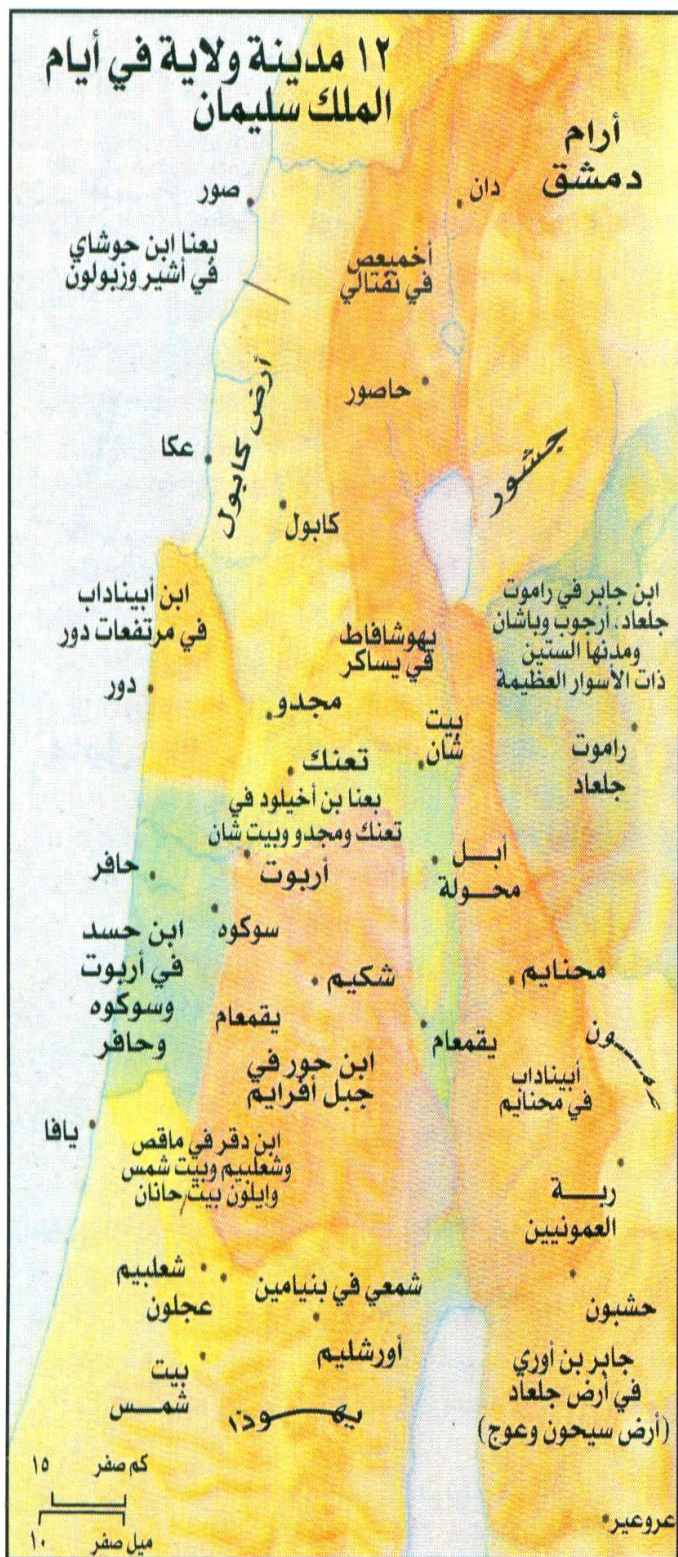 ١٢ مدينة ولاية في أيام
الملك سليمان
أرام
دمشق
صور
دان
بعنا ابن حوشاي
في أشير وزبولون
أخميعص
في نفتالي
حاصور
أرض كابول
جشور
عكا
كابول
ابن أبيناداب
في مرتفعات دور
يهوشافاط
في يساكر
ابن جابر في راموت
جلعاد، أرجوب وباشان
ومدنها الستين
ذات الأسوار العظيمة
دور
مجدو
بيت
شان
راموت
جلعاد
تعنك
بعنا بن أخيلود في
تعنك ومجدو وبيت شان
حافر
أربوت
أبــل
محـولة
سوكوه
ابن حسد
في أربوت
وسوكوه
وحافر
شكيم
محنايم
يقمعام
يقمعام
عمــون
ابن حور في
جبل أفرايم
أبيناداب
في محنايم
يافا
ابن دقر في ماقص
وشعلبيم وبيت شمس
وايلون بيت حانان
ربــة
العمونيين
شعلبيم
عجلون
شمعي في بنيامين
حشبون
أورشليم
بيت
شمــس
جابر بن أوري
في أرض جلعاد
(أرض سيحون وعوج)
يهـوذا
كم صفر ١٥
ميل صفر ١٠
عروعير